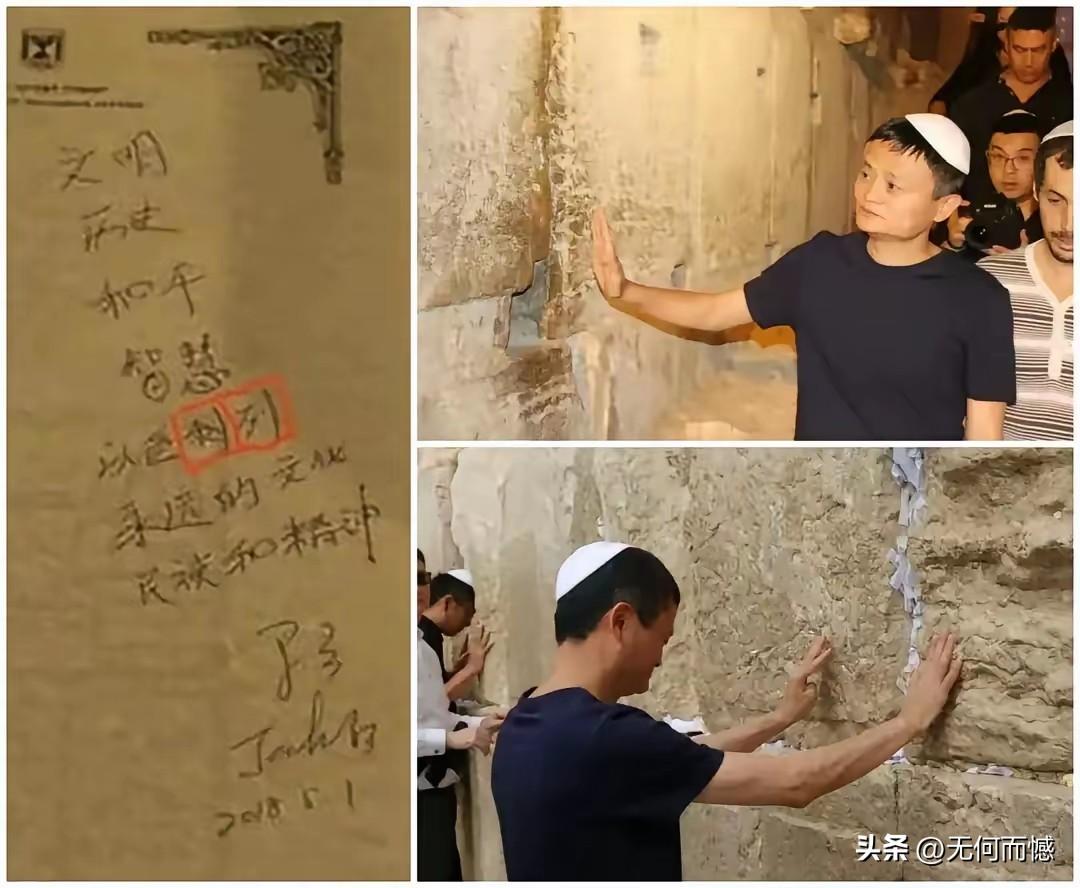 文明
历史
和平
智慧
以色列
永远的文化
民族和精神
马云
Jack Ma
2018.5.1
头条 @无何而憾